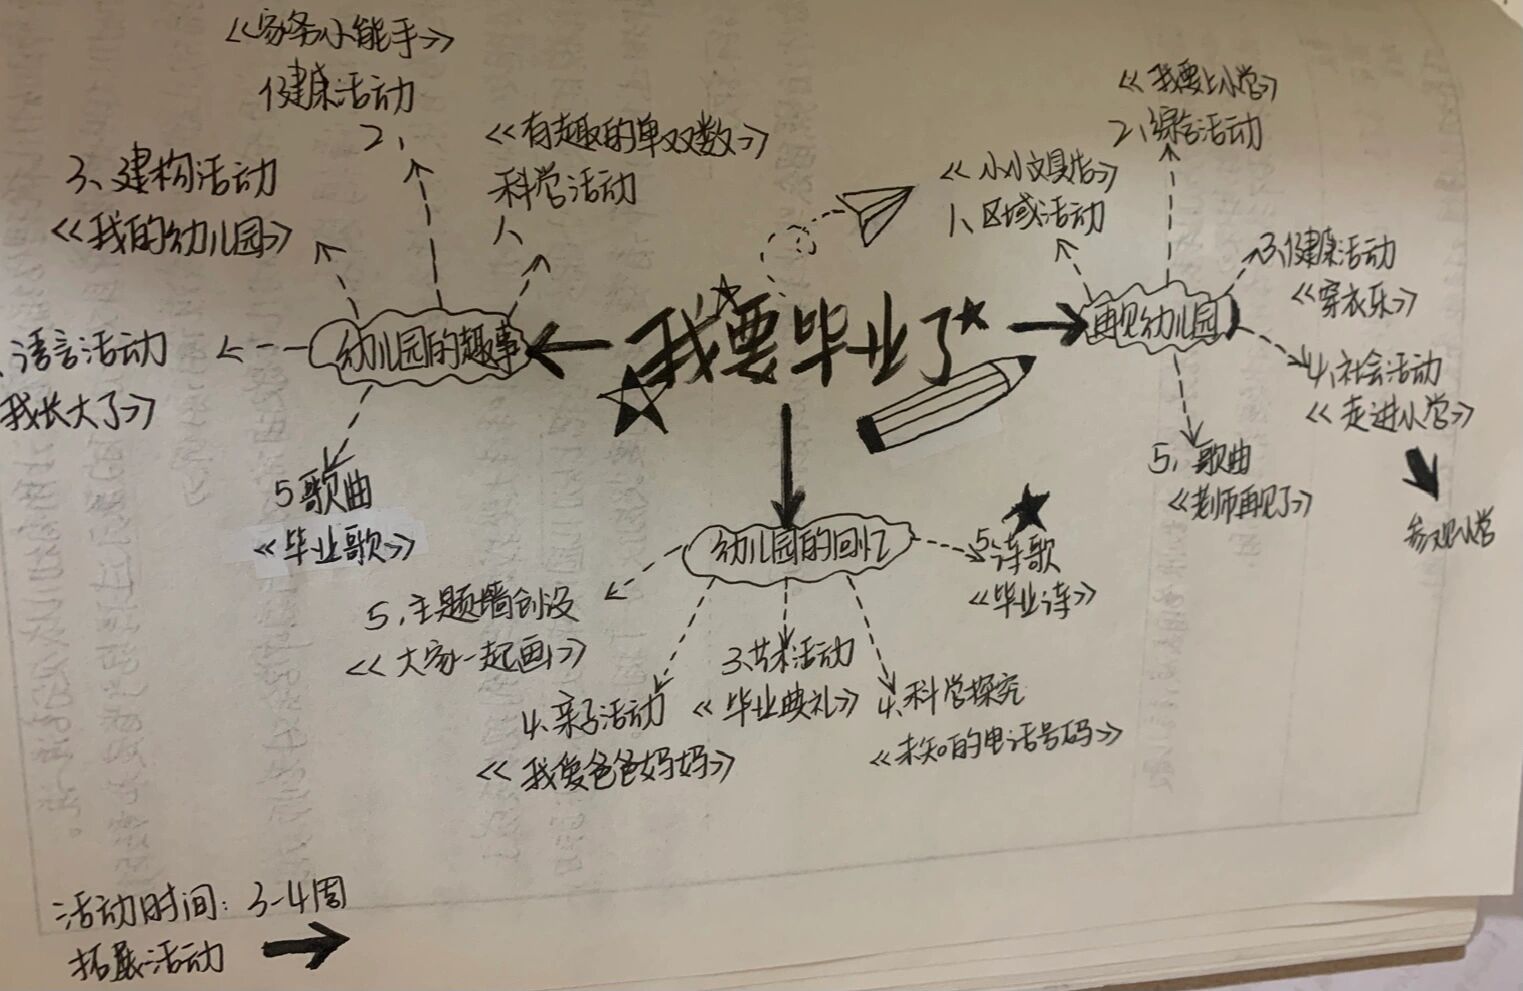 我要毕业了
幼儿园的趣事
1、
科学活动
《有趣的单双数》
2、
健康活动
《家务小能手》
3、建构活动
《我的幼儿园》
、语言活动
我长大了》
5歌曲
《毕业歌》
再见幼儿园
《小小文具店》
1、区域活动
《我要上小学》
2、综合活动
3、健康活动
《穿衣乐》
4、社会活动
《走进小学》
参观小学
5、歌曲
《老师再见了》
幼儿园的回忆
5、诗歌
《毕业诗》
4、科学探究
《未知的电话号码》
3、艺术活动
《毕业典礼》
4、亲子活动
《我爱爸爸妈妈》
5、主题墙创设
《大家一起画》
活动时间：3-4周
拓展活动